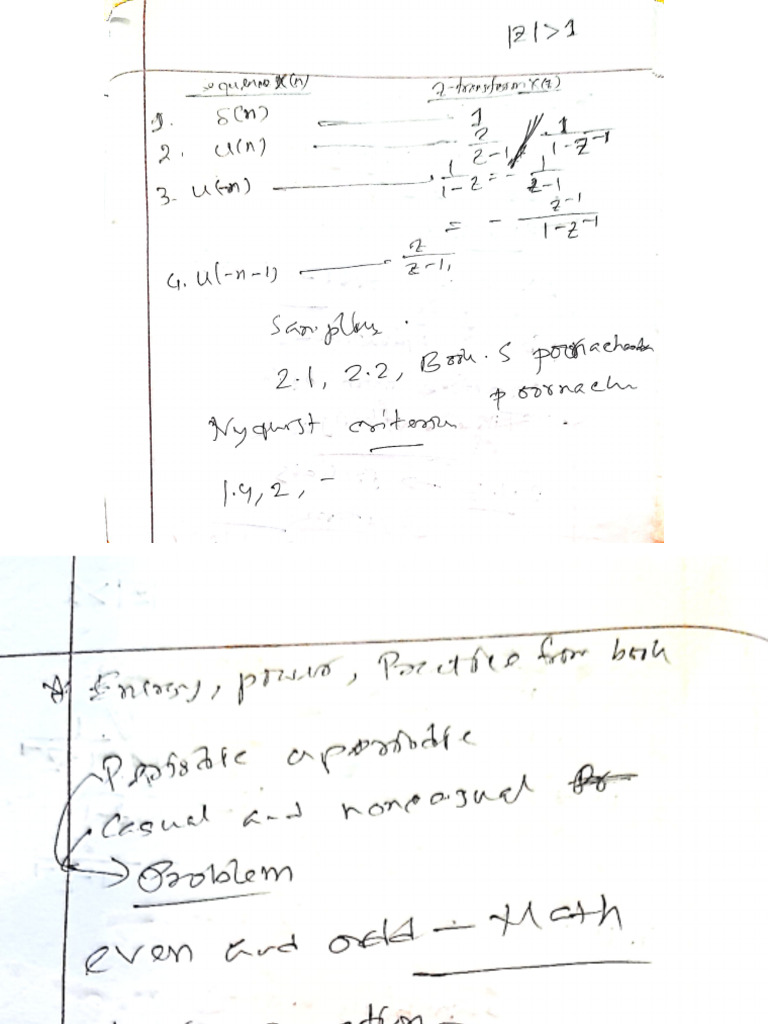 |z| > 1
sequence x(n) z-transform X(z)
1. δ(n) — 1
2. u(n) — z/z-1 // 1/1-z-1
3. u(-n) — 1/1-z = - 1/z-1
= - z-1/1-z-1
4. u(-n-1) — - z/z-1,
2.1, 2.2, Book. S
Nyquist criteria
1.4, 2, -
Energy, power, Practice from book
Periodic aperiodic
Casual and noncasual
Problem
even and odd — Math